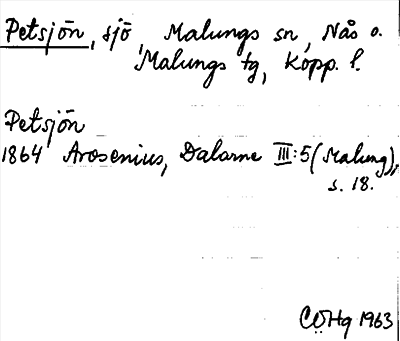 Petsjön, sjö, Malungs sn, Nås o.
Malungs tg, Kopp. l.
Petsjön
1864 Arosenius, Dalarne III:5 (Malung),
s. 18.
CÖHg 1963